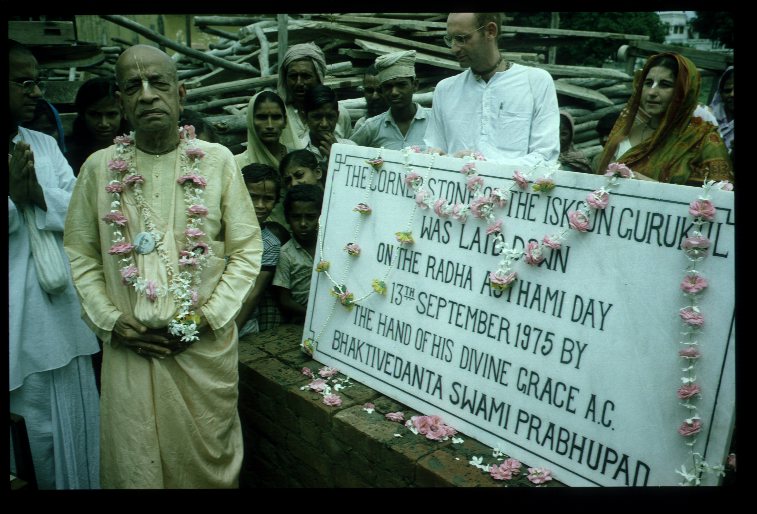 THE CORNER STONE OF THE ISKCON GURUKUL
WAS LAID DOWN
ON THE RADHA ASTHAMI DAY
13TH SEPTEMBER 1975 BY
THE HAND OF HIS DIVINE GRACE A.C.
BHAKTIVEDANTA SWAMI PRABHUPAD